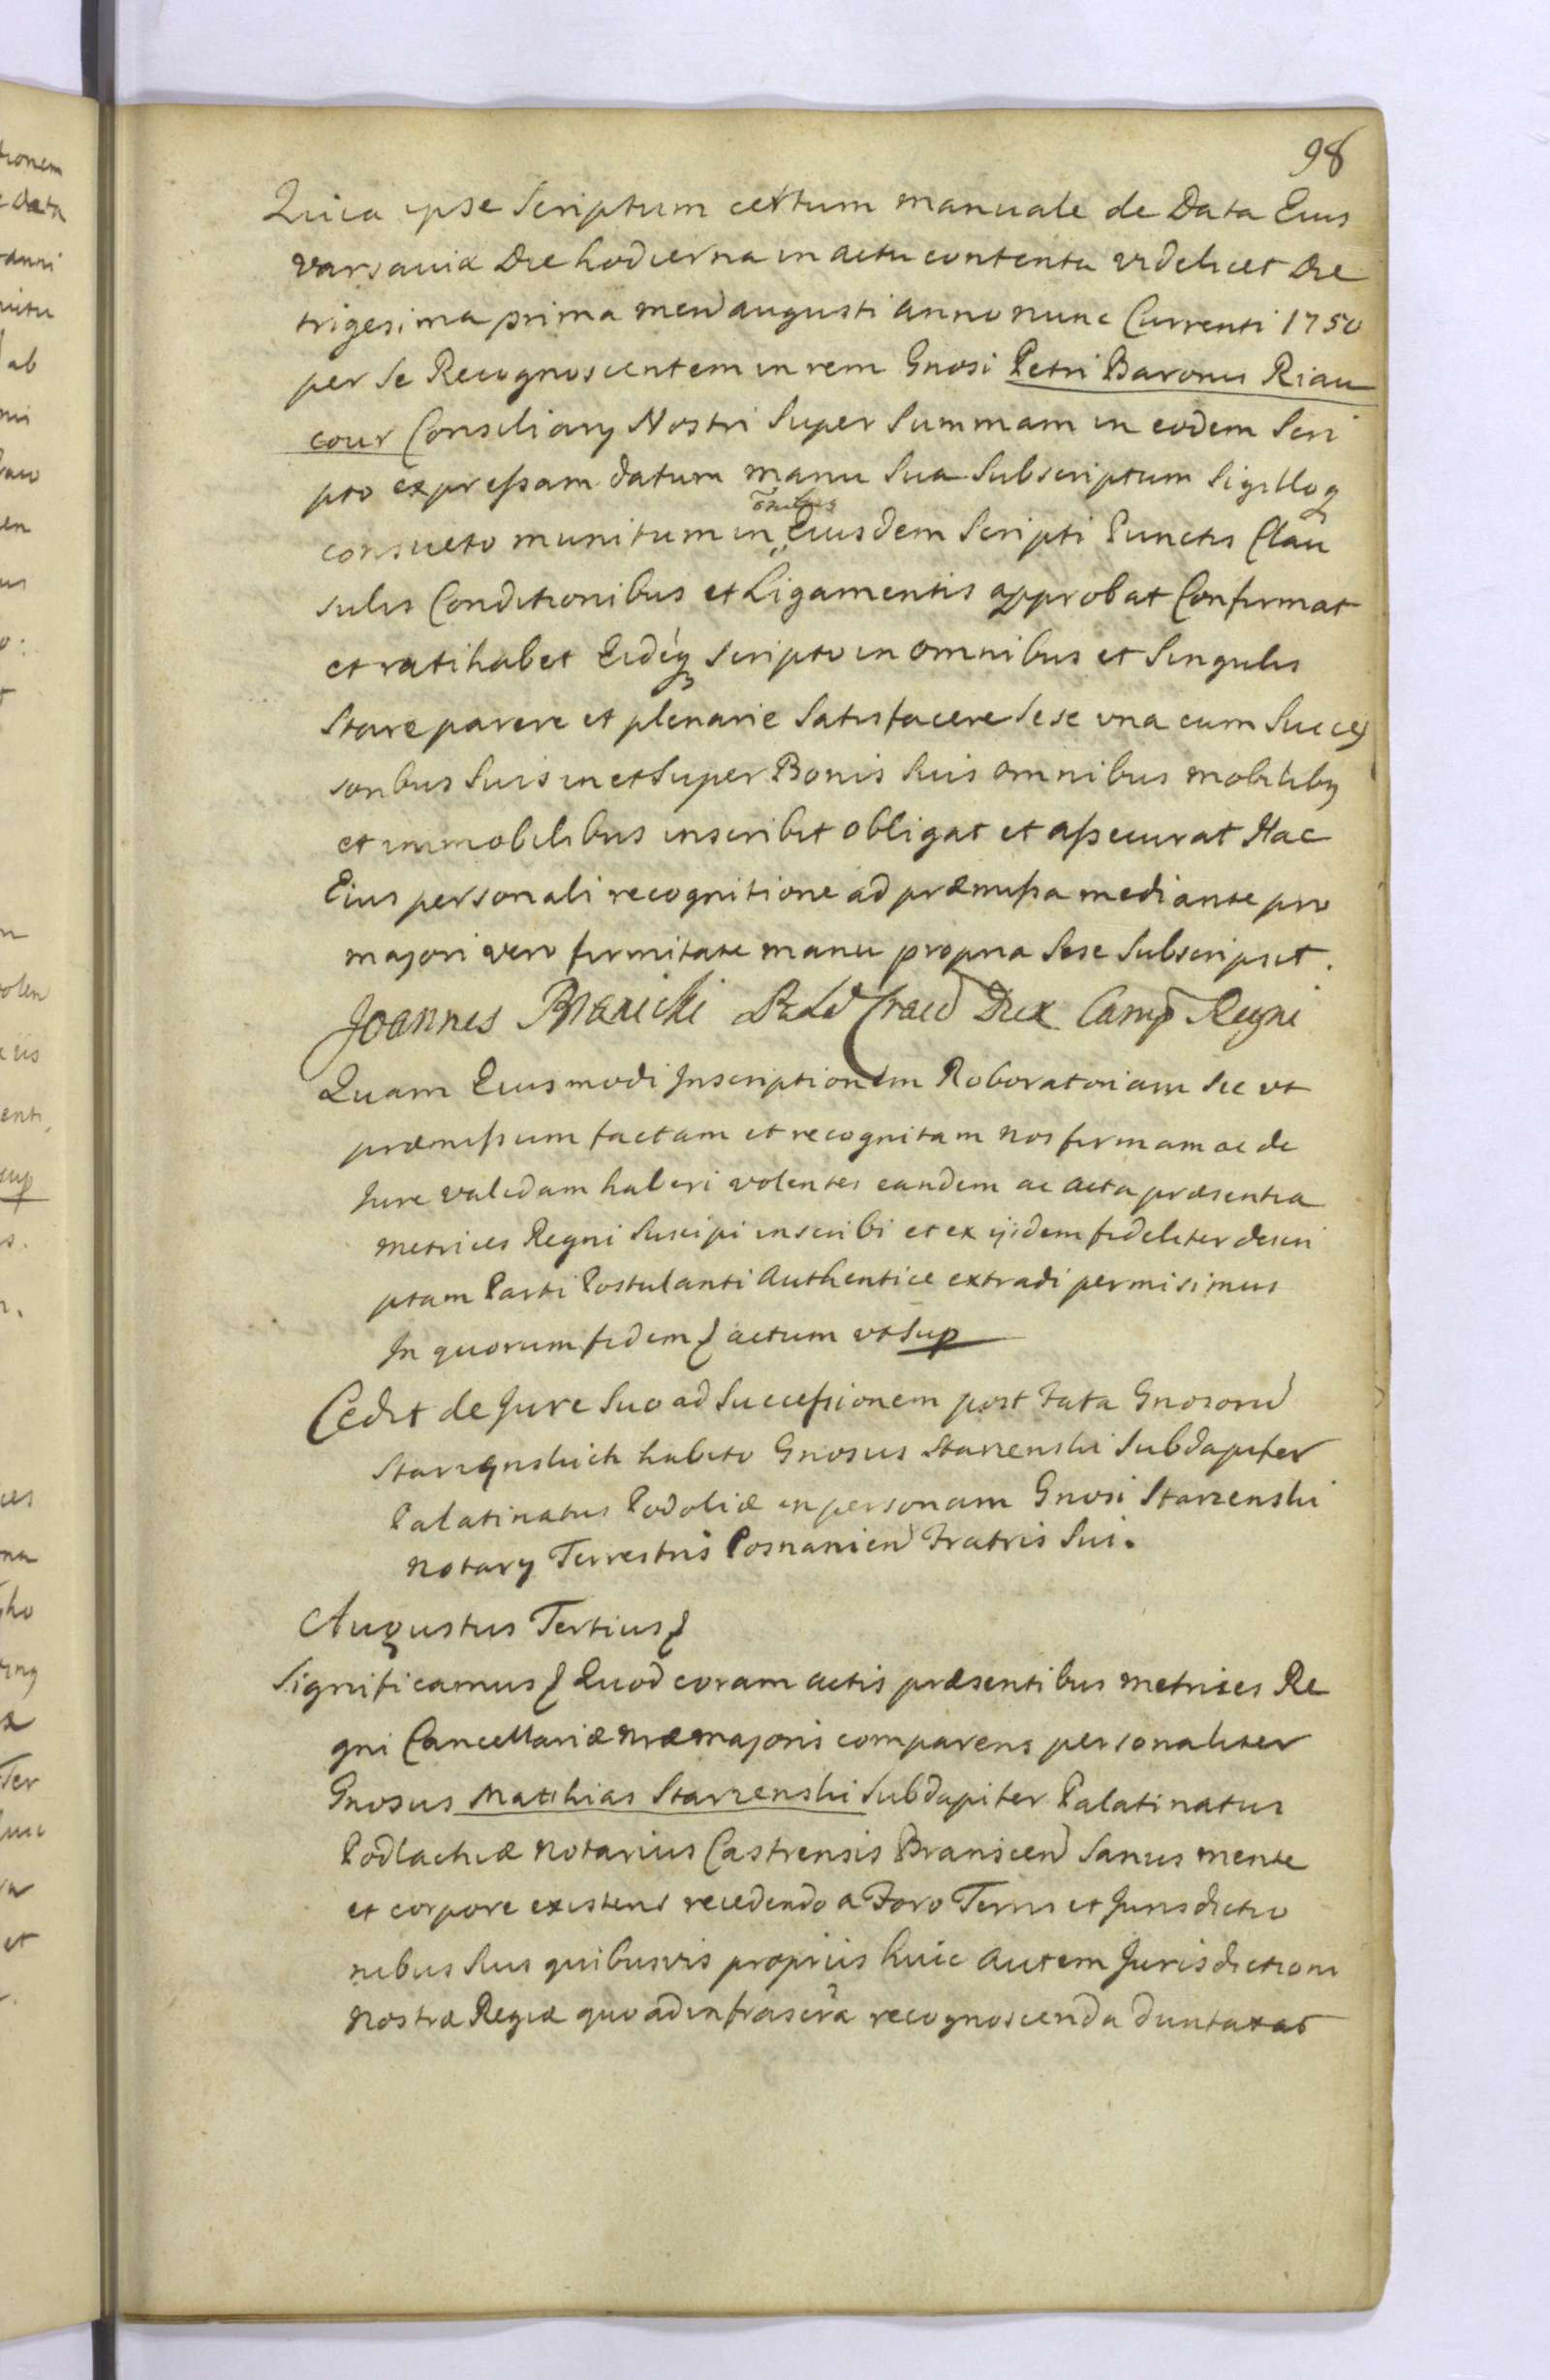 98
Quia ipse Scriptum certum manuale de Data Eius
Varsaviæ Die hodierna in actu contenta videlicet Die
trigesima prima men augusti anno nunc Currenti 1750
per Se Recognoscentem in rem Gnosi Petri Baronis Riau
cour Consiliarij Nostri Super Summam in eodem Scri
pto expressam datum manu Sua Subscriptum Sigilloq
consueto munitum in õnibus Eiusdem Scripti Punctis Clau
sulis Conditionibus et Ligamentis approbat Confirmat
et ratihabet Eidéq Scripto in omnibus et Singulis
Stare parere et plenarie Satisfacere Sese una cum Succes
soribus Suis in et Super Bonis Suis omnibus mobilibq
et immobilibus inscribit obligat et assecurat Hac
Eius personali recognitione ad præmissa mediante pro
majori vero firmitate manu propria Sese Subscripsit.
Joannes Branicki Dux Camp Regni
Quam Eiusmodi Inscriptionem Roboratoriam Sic ut
præmissum factam et recognitam nos firmam ac de
Jure validam haberi volentes eandem ac acta præsentia
metrices Regni Suscipi inscribi et ex ijsdem fideliter descri
ptam Parti Postulanti Authentice extradi permisimus
In quorum fidem actum ut Sup
Cedit de Jure Suo ad Successionem post Fata Gnosorũ
Starzenskich habito Gnosus Starzenski Subdapifer
Palatinatus Podoliæ in personam Gnosi Starzenski
Notarij Terrestris Posnanien Fratris Sui.
Augustus Tertius
Significamus Quod coram actis præsentibus metrices Re
gni Cancellariæ nræ majoris comparens personaliter
Gnosus Matthias Starzenski Subdapifer Palatinatus
Podlachiæ Notarius Castrensis Branscen Sanus mente
et corpore existens recedendo a Foro Terris et Jurisdictio
nibus Suis quibusvis propriis huic autem Jurisdictioni
Nostræ Regiæ quo ad infrascra recognoscenda duntaxat